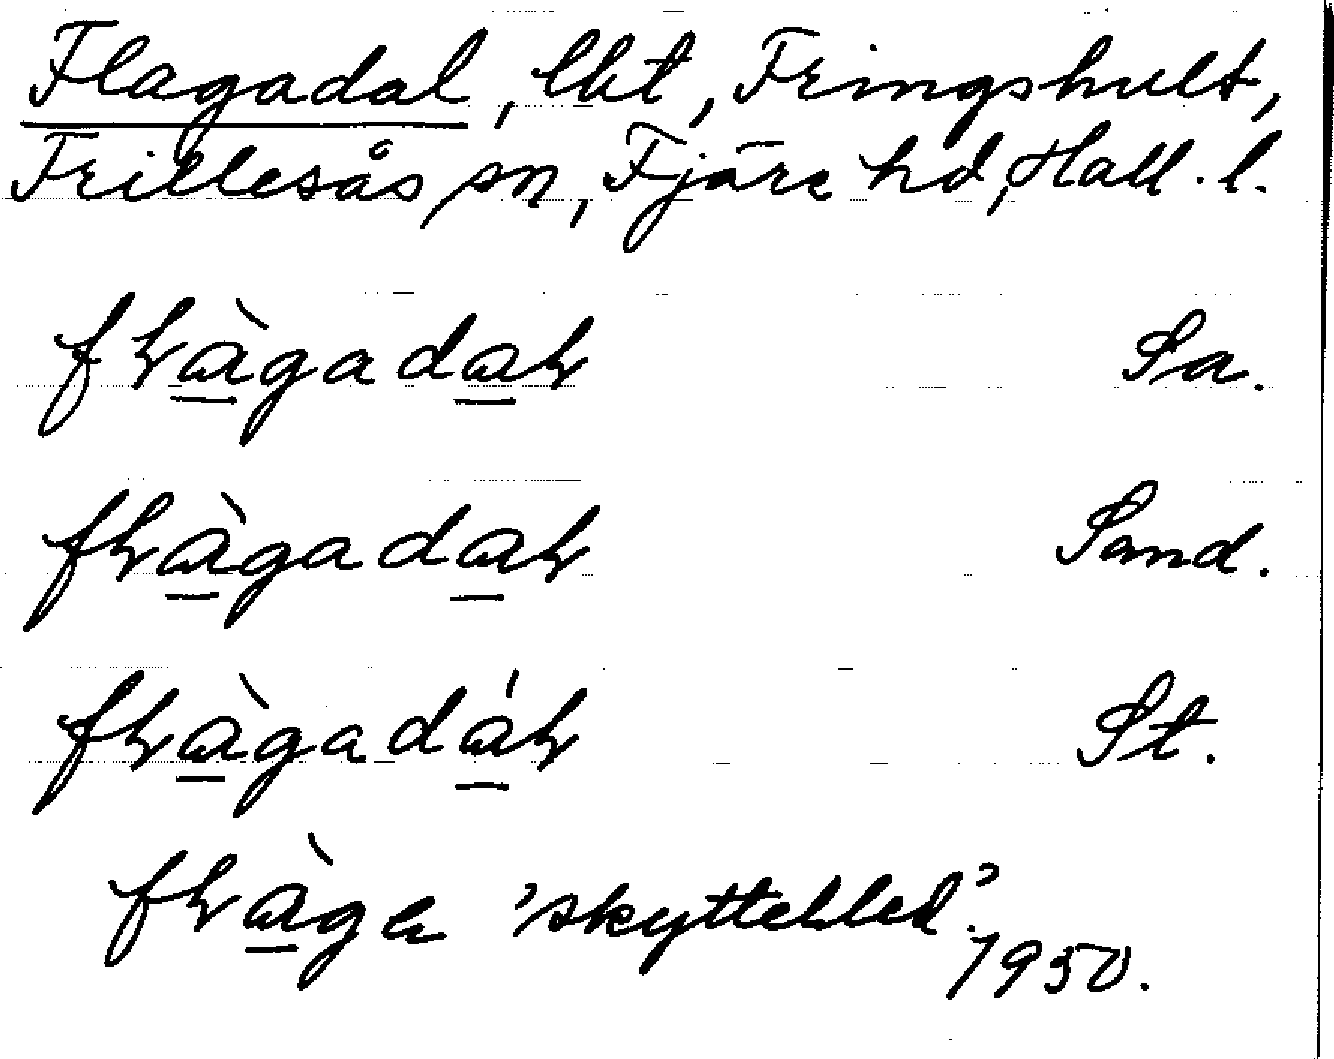 Flagadal, lht, Fringshult,
Frillesås sn, Fjäre hd, Hall. l.
fɫàgadaɫ Sa.
fɫàgadaɫ Sand.
fɫàgadáɫ St.
fɫàgɐ 'skyttebled'.
1950.